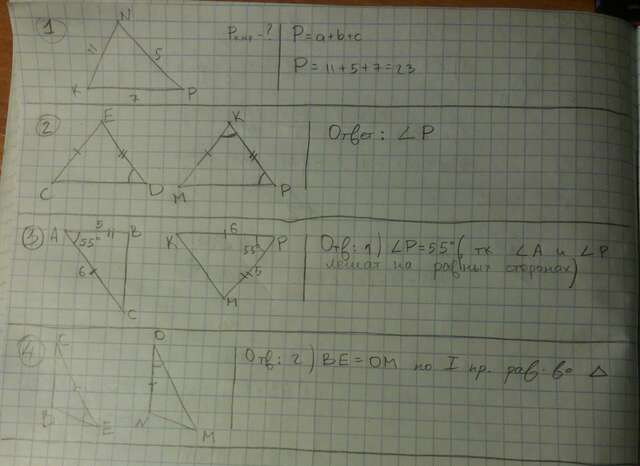 1
N
11
5
K
7
P
P = a+b+c
P = 11+5+7=23
2
E
C
D
K
M
P
Ответ: ∠P
3
A
5
B
55°
6
C
K
6
P
55°
5
M
Отв: 1) ∠P=55° ( тк ∠A и ∠P
лежат на равных сторонах)
4
C
B
E
O
N
M
Отв: 2) BE = OM по I пр. рав-ва Δ